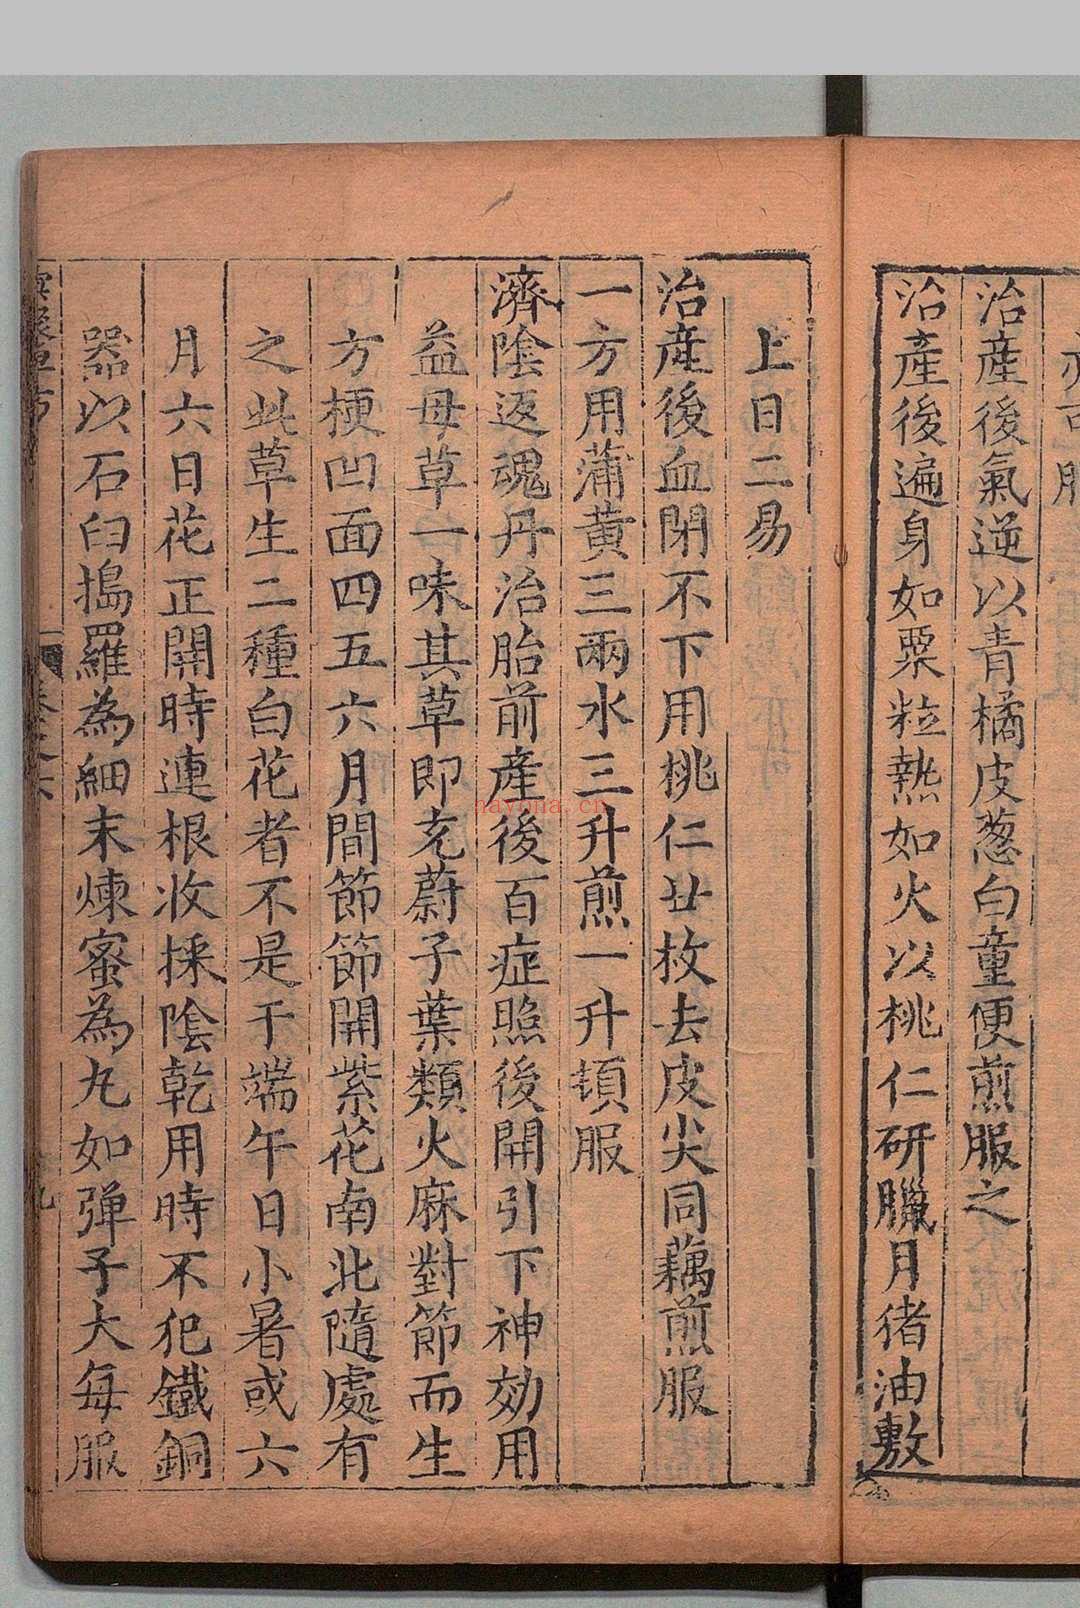 亦可服
治產後氣逆以青橘皮葱白童便煎服之
治產後遍身如粟粒熱如火以桃仁研臘月猪油敷
上日二易
治産後血閉不下用桃仁廿枚去皮尖同藕煎服
一方用蒲黃三兩水三升煎一升頓服
濟陰返魂丹治胎前産後百症照後開引下神効用
益母草一味其草即充蔚子葉類火麻對節而生
方梗凹面四五六月間節節開紫花南北隨處有
之此草生二種白花者不是于端午日小暑或六
月六日花正開時連根收採陰乾用時不犯鐵銅
器以石臼搗羅為細末煉蜜為丸如弹子大每服
卷之六
九
nayona.cn